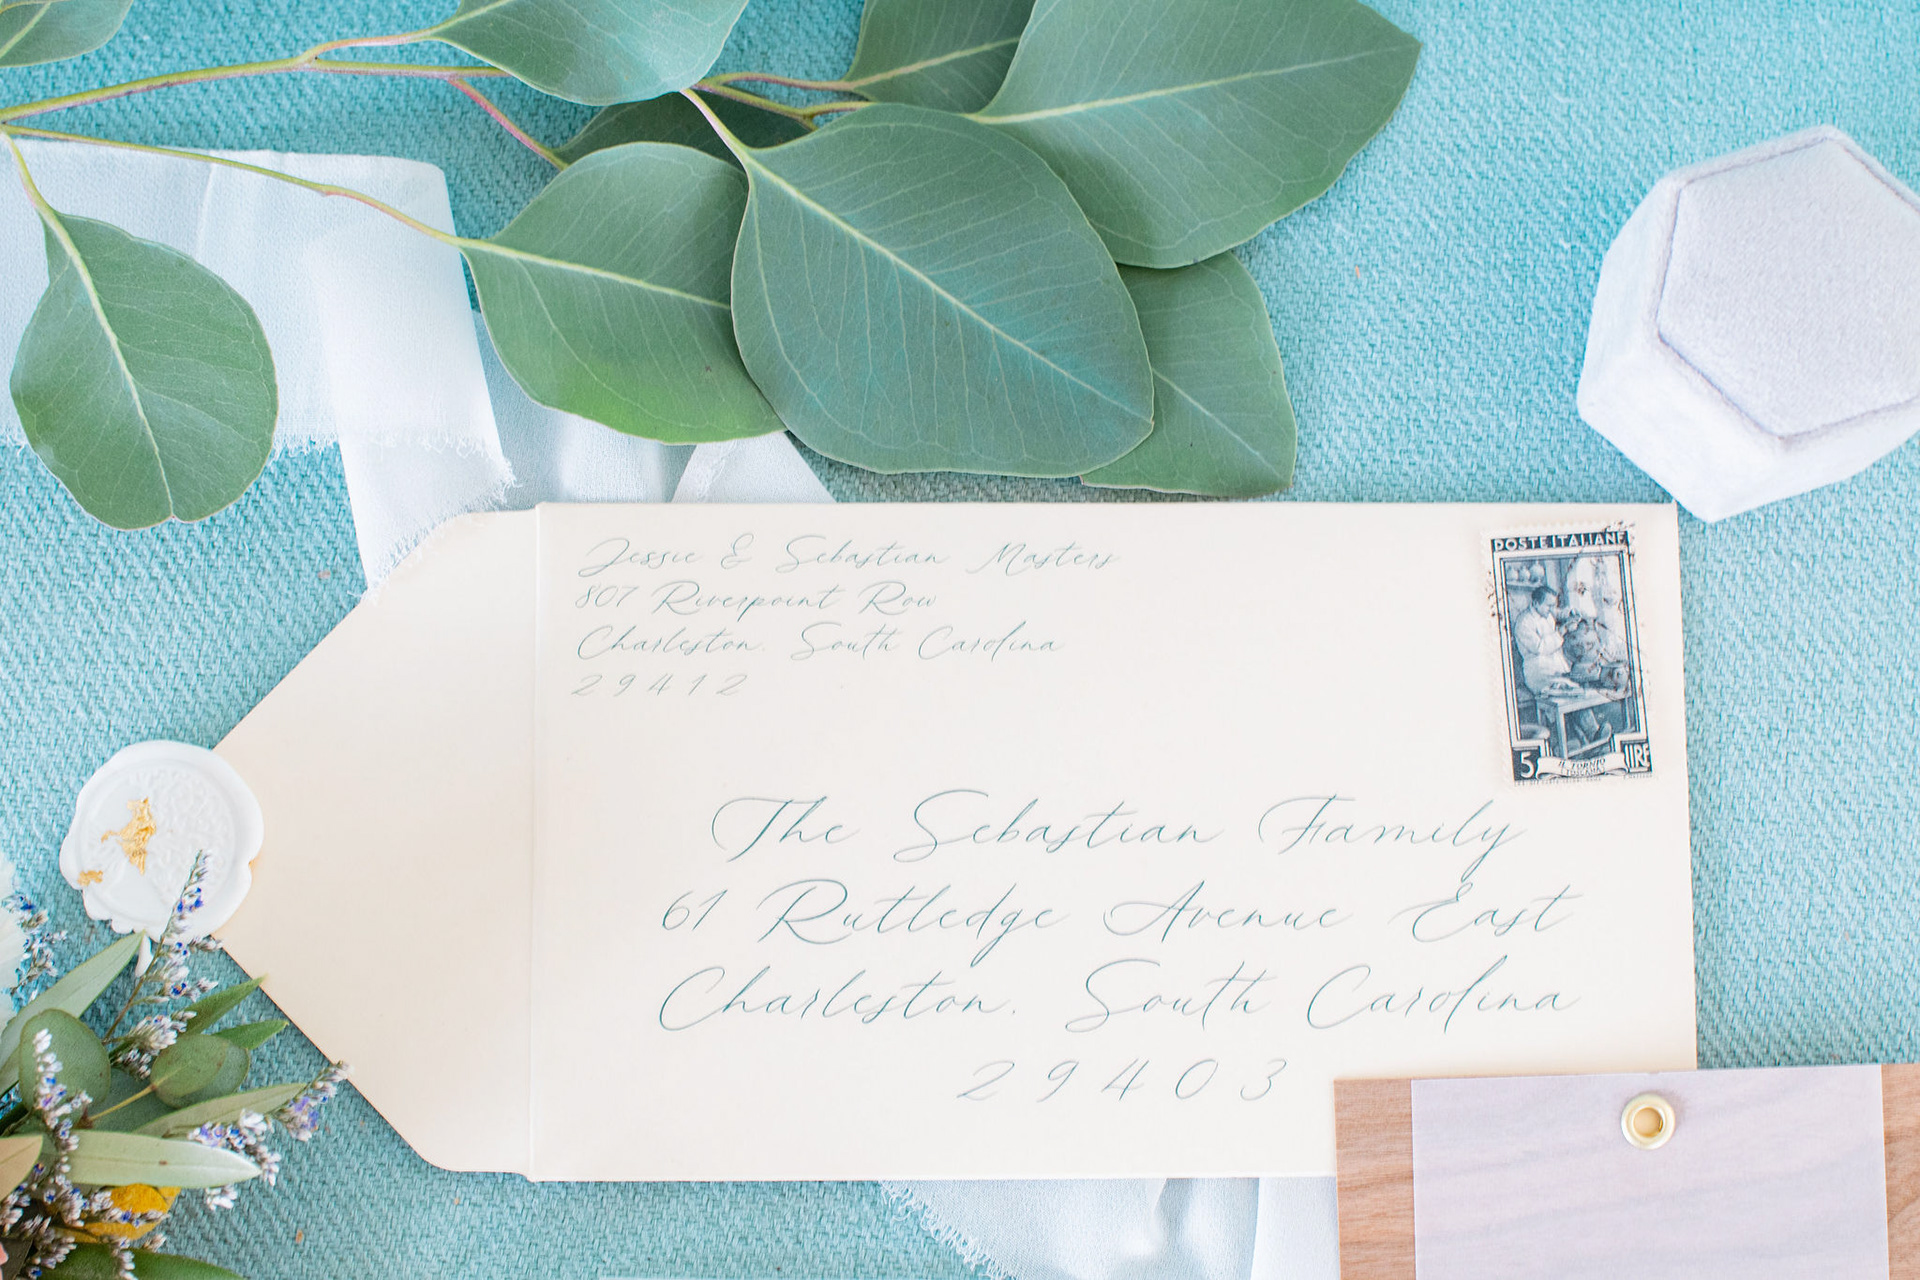 Jessie & Sebastian Masters
807 Riverpoint Row
Charleston, South Carolina
29412
POSTE ITALIANE
5 LIRE
IL TORNIO
TOSCANA
The Sebastian Family
61 Rutledge Avenue East
Charleston, South Carolina
29403